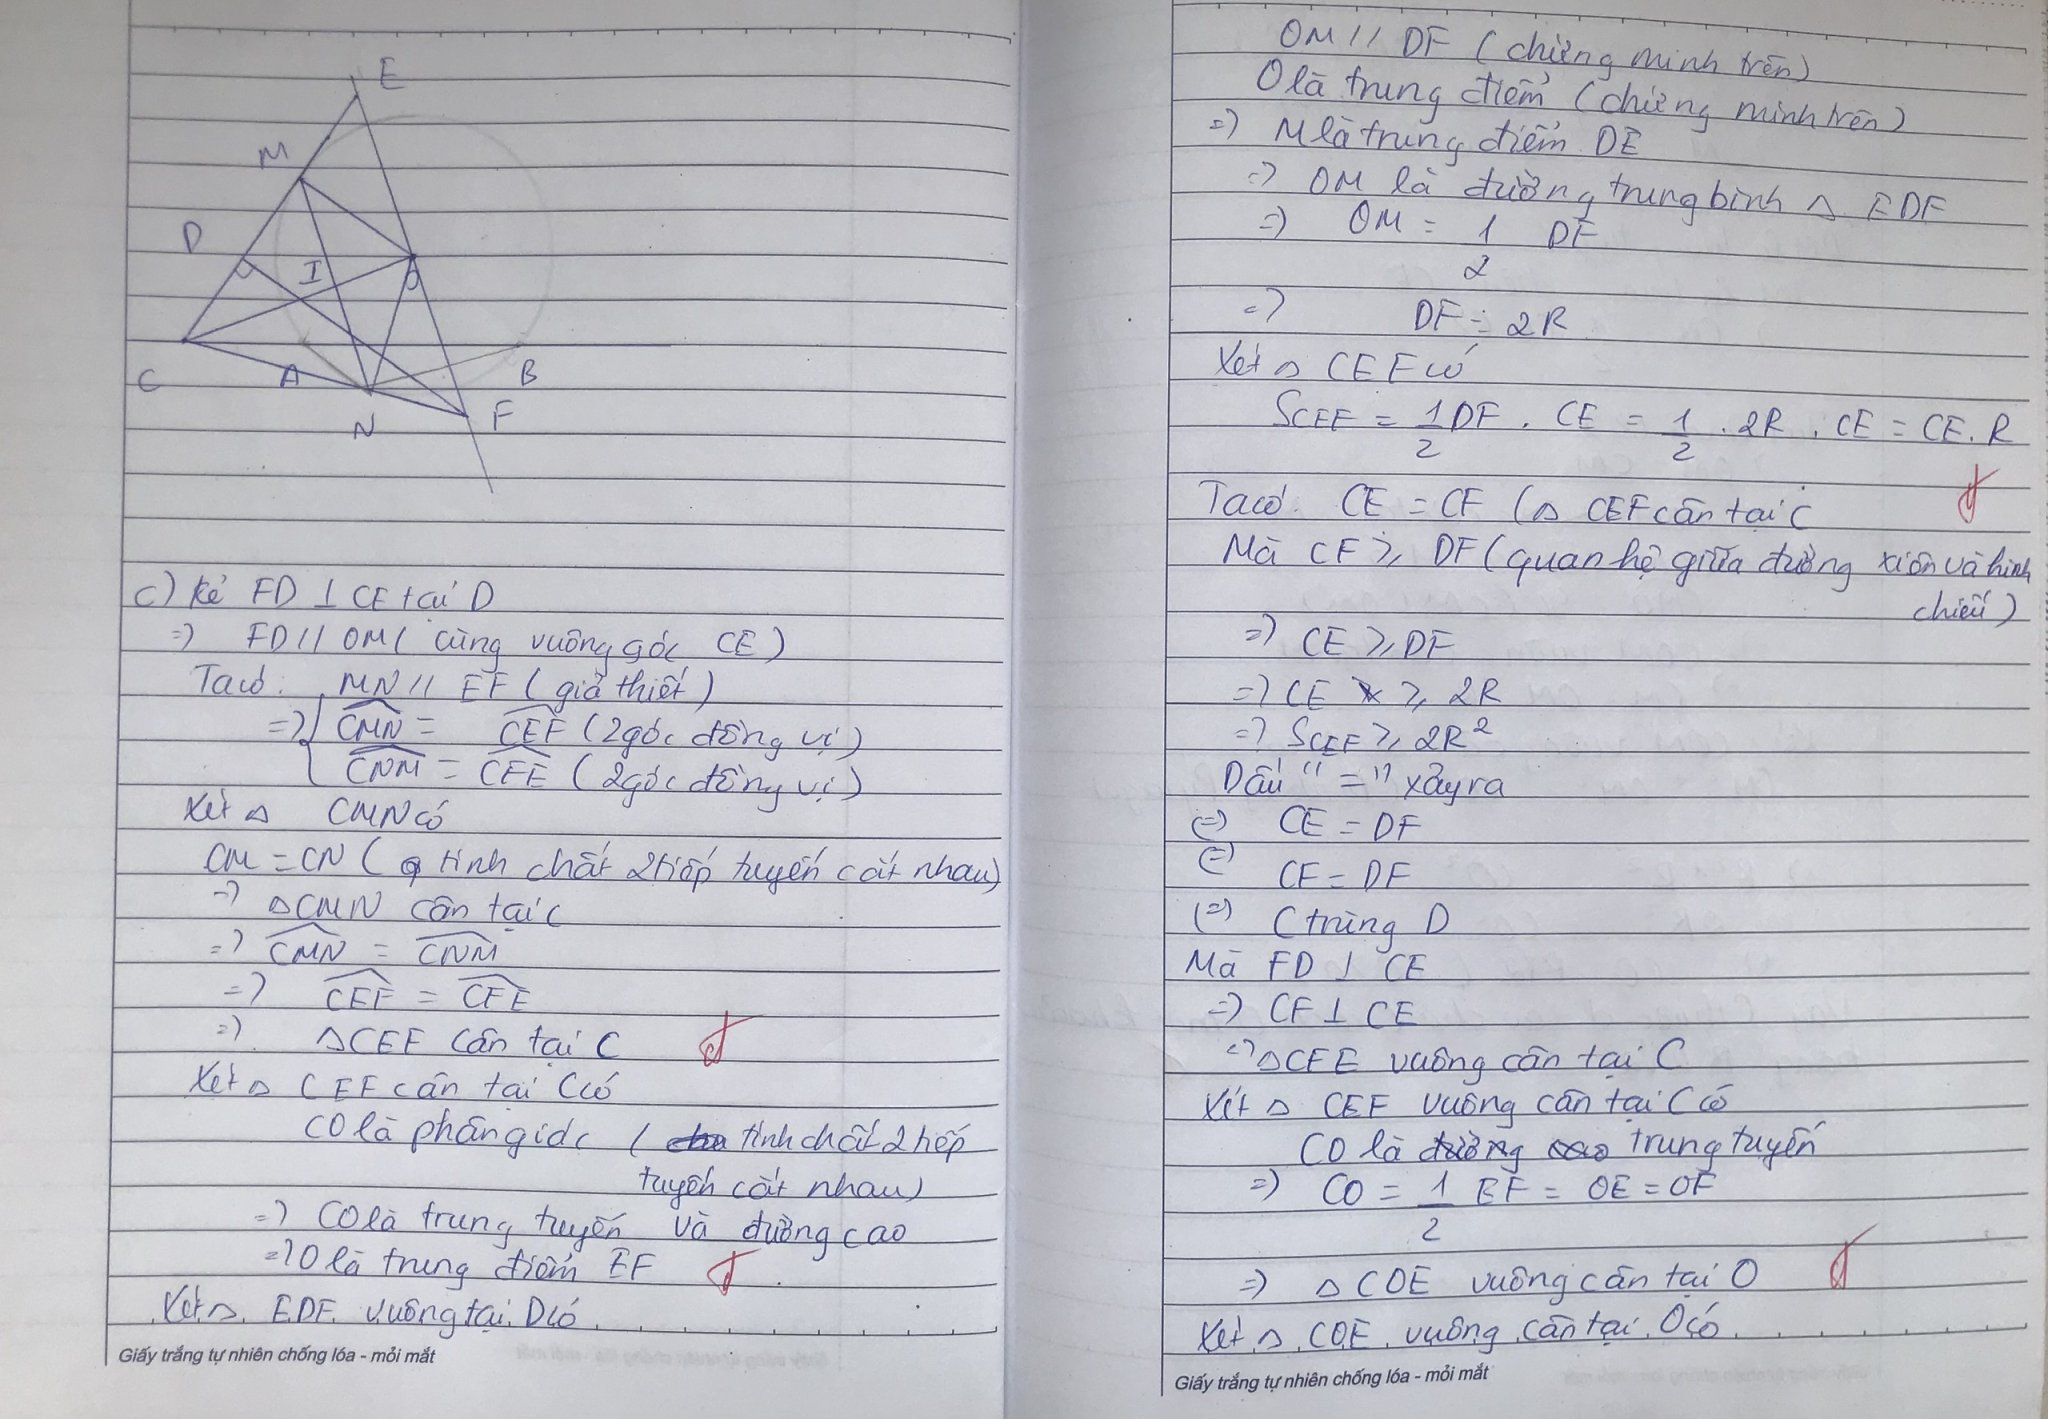 E
M
D
I
O
C
A
B
N
F
c) Kẻ FD ⊥ CE tại D
=) FD // OM ( cùng vuông góc CE )
Ta có: MN // EF ( giả thiết )
=) CMN = CEF ( 2 góc đồng vị )
CNM = CFE ( 2 góc đồng vị )
Xét △ CMN có
CM = CN ( tính chất 2 tiếp tuyến cắt nhau)
=) △CMN cân tại C
=) CMN = CNM
=) CEF = CFE
=) △CEF cân tại C
Xét △ CEF cân tại C có
CO là phân giác ( tính chất 2 tiếp
tuyến cắt nhau)
=) CO là trung tuyến và đường cao
=) O là trung điểm EF
Xét △ EDF vuông tại D có
Giấy trắng tự nhiên chống lóa - mỏi mắt
OM // DF ( chứng minh trên)
O là trung điểm ( chứng minh trên)
=) M là trung điểm DE
=) OM là đường trung bình △ EDF
=) OM = 1/2 DF
=) DF = 2R
Xét △ CEF có
SCEF = 1/2 DF . CE = 1/2 . 2R . CE = CE. R
Ta có. CE = CF (△ CEF cân tại C
Mà CF ⩾ DF ( quan hệ giữa đường xiên và hình
chiếu )
=) CE ⩾ DF
=) CE ⩾ 2R
=) SCEF ⩾ 2R²
Dấu "=" xảy ra
(=) CE = DF
(=) CF = DF
(=) C trùng D
Mà FD ⊥ CE
=) CF ⊥ CE
=) △CFE vuông cân tại C
Xét △ CEF vuông cân tại C có
CO là đường trung tuyến
=) CO = 1/2 EF = OE = OF
=) △ COE vuông cân tại O
Xét △ COE vuông cân tại O có
Giấy trắng tự nhiên chống lóa - mỏi mắt